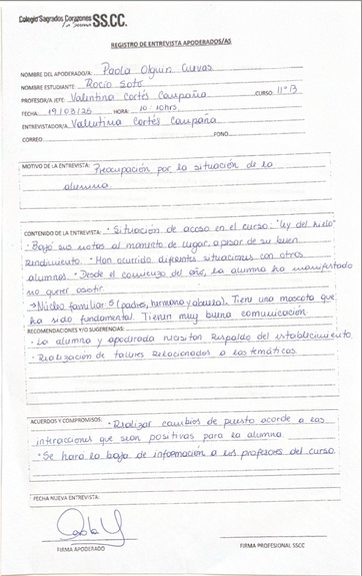 Colegio Sagrados Corazones SS.CC.
La Serena
REGISTRO DE ENTREVISTA APODERADOS/AS
NOMBRE DEL APODERADO/A: Paola Olguín Cuevas
NOMBRE ESTUDIANTE: Rocío Soto
PROFESOR/A JEFE: Valentina Cortés Campaña CURSO: II°B
FECHA: 19/03/25 HORA: 10:10hrs
ENTREVISTADOR/A: Valentina Cortés Campaña
CORREO FONO
MOTIVO DE LA ENTREVISTA: Preocupación por la situación de la
alumna.
CONTENIDO DE LA ENTREVISTA: • Situación de acoso en el curso: "ley del hielo"
• Bajó sus notas al momento de lugar, a pesar de su buen
rendimiento. • Han ocurrido diferentes situaciones con otros
alumnos. • Desde el comienzo del año, la alumna ha manifestado
no querer asistir.
→ Núcleo familiar 5 (padres, hermano y abuela). Tiene una mascota que
ha sido fundamental. Tienen muy buena comunicación
RECOMENDACIONES Y/O SUGERENCIAS:
• La alumna y apoderada necesitan respaldo del establecimiento.
• Realización de talleres relacionados a las temáticas.
ACUERDOS Y COMPROMISOS: • Realizar cambios de puesto acorde a las
interacciones que sean positivas para la alumna.
• Se hará la baja de información a los profesores del curso.
FECHA NUEVA ENTREVISTA:
FIRMA APODERADO FIRMA PROFESIONAL SSCC